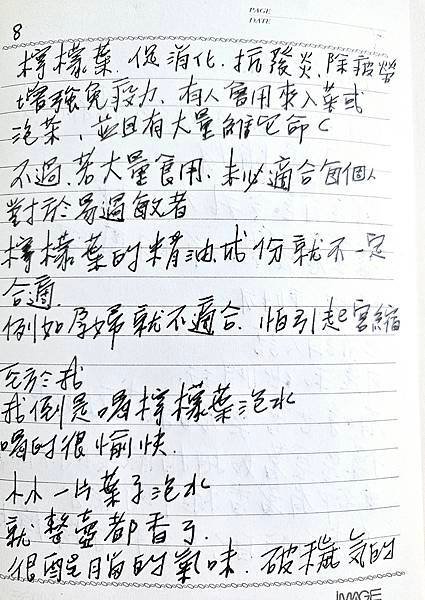 PAGE
DATE
8
檸檬葉.促消化.抗發炎.除疲勞
增強免疫力.有人會用來入菜或
泡茶、並且有大量維它命C
不過.若大量食用.未必適合每個人
對於易過敏者
檸檬葉的精油成份就不一定
合適.
例如孕婦就不適合.怕引起宮縮
至於我
我倒是喝檸檬葉泡水
喝的很愉快.
小小一片葉子泡水
就整壺都香了.
很醒腦的氣味.破穢氣的
IMAGE